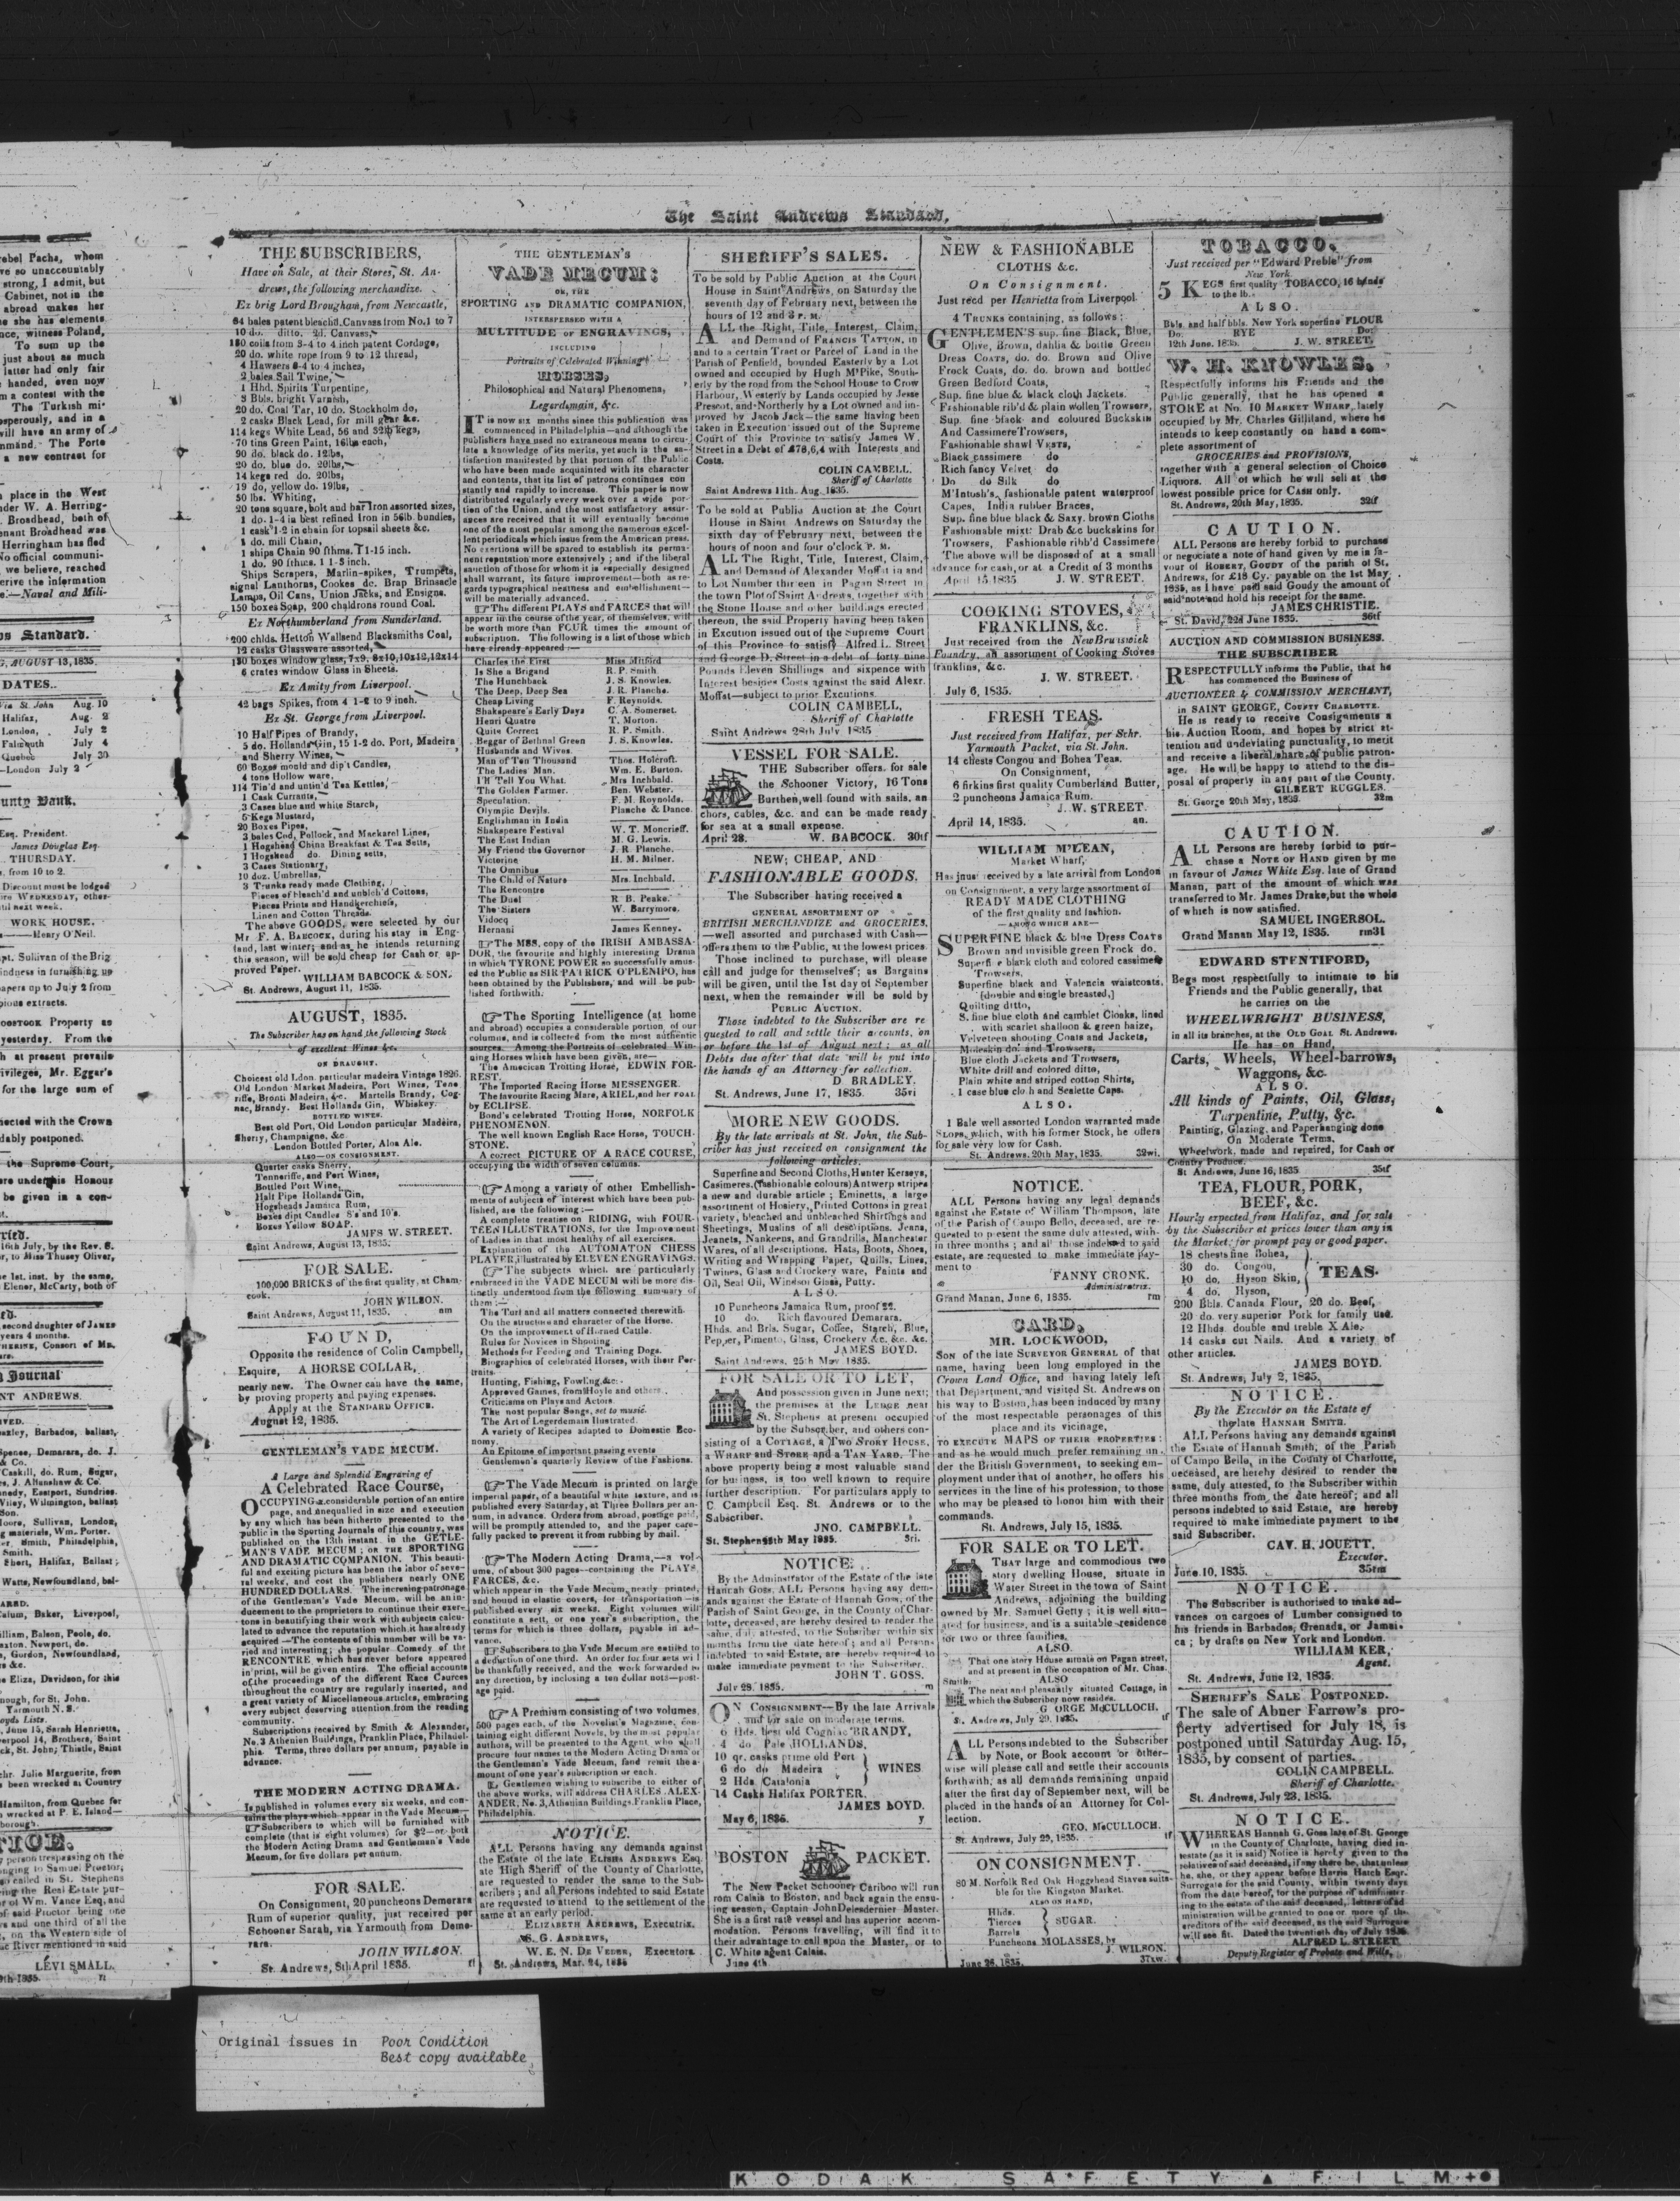 The Saint Andrews Standard.
THE SUBSCRIBERS,
Have on Sale, at their Stores, St. An-
drews, the following merchandize.
Ex brig Lord Brougham, from Newcastle,
64 bales patent bleachd. Canvass from No.1 to 7
10 do. ditto. 2d. Canvass,
180 coils from 3-4 to 4 inch patent Cordage,
20 do. white rope from 9 to 12 thread,
4 Hawsers 8-4 to 4 inches,
2 bales Sail Twine,
1 Hhd. Spirits Turpentine,
8 Bbls. bright Varnish,
20 do. Coal Tar, 10 do. Stockholm do,
2 casks Black Lead, for mill gear &c.
114 kegs White Lead, 56 and 32lb kegs,
70 tins Green Paint, 16lbs each,
90 do. black do. 12lbs,
20 do. blue do. 20lbs,
14 kegs red do. 20lbs,
19 do. yellow do. 19lbs,
50 lbs. Whiting,
20 tons square, bolt and bar Iron assorted sizes,
1 do. 1-4 in best refined Iron in 56lb. bundles,
1 cask 1-2 in chain for topsail sheets &c.
1 do. mill Chain,
1 ships Chain 90 fthms. 1 1-15 inch.
1 do. 90 fthms. 1 1-8 inch.
Ships Scrapers, Marlin-spikes, Trumpets,
signal Lanthorns, Cookes do. Brap Brinsacle
Lamps, Oil Cans, Union Jacks, and Ensigns.
150 boxes Soap, 200 chaldrons round Coal.
Ex Northumberland from Sunderland.
200 chlds. Hetton Wallsend Blacksmiths Coal,
12 casks Glassware assorted,
130 boxes window glass, 7x9, 8x10, 10x12, 12x14
6 crates window Glass in Sheets.
Ex Amity from Liverpool.
42 bags Spikes, from 4 1-2 to 9 inch.
Ex St. George from Liverpool.
10 Half Pipes of Brandy,
5 do. Hollands Gin, 15 1-2 do. Port, Madeira
and Sherry Wines,
60 Boxes mould and dip't Candles,
4 tons Hollow ware,
114 Tin'd and untin'd Tea Kettles,
1 Cask Currants,
3 Cases blue and white Starch,
5 Kegs Mustard,
20 Boxes Pipes,
3 bales Cod, Pollock, and Mackarel Lines,
1 Hogshead China Breakfast & Tea Setts,
1 Hogshead do. Dining setts,
3 Cases Stationary,
10 doz. Umbrellas,
3 Trunks ready made Clothing,
Pieces of bleach'd and unblch'd Cottons,
Pieces Prints and Handkerchiefs,
Linen and Cotton Threads.
The above GOODS, were selected by our
Mr F. A. BABCOCK, during his stay in Eng-
land, last winter; and as he intends returning
this season, will be sold cheap for Cash or ap-
proved Paper.
WILLIAM BABCOCK & SON.
St. Andrews, August 11, 1835.
AUGUST, 1835.
The Subscriber has on hand the following Stock
of excellent Wines &c.
ON DRAUGHT.
Choicest old Ldon. particular madeira Vintage 1826.
Old London Market Madeira, Port Wines, Tene
riffe, Bronti Madeira, &c. Martells Brandy, Cog-
nac, Brandy. Best Hollands Gin, Whiskey.
BOTTLED WINES.
Best old Port, Old London particular Madeira,
Sherry, Champaigne, &c.
London Bottled Porter, Aloa Ale.
ALSO—ON CONSIGNMENT.
Quarter casks Sherry,
Tenneriffe, and Port Wines,
Bottled Port Wine,
Half Pipe Hollands Gin,
Hogsheads Jamaica Rum,
Boxes dipt Candles 8's and 10's.
Boxes Yellow SOAP.
JAMES W. STREET.
Saint Andrews, August 13, 1835.
FOR SALE.
100,000 BRICKS of the first quality, at Cham-
cook.
JOHN WILSON.
Saint Andrews, August 11, 1835. nm
FOUND,
Opposite the residence of Colin Campbell,
Esquire, A HORSE COLLAR,
nearly new. The Owner can have the same,
by proving property and paying expenses.
Apply at the STANDARD OFFICE.
August 12, 1835.
GENTLEMAN'S VADE MECUM.
A Large and Splendid Engraving of
A Celebrated Race Course,
OCCUPYING a considerable portion of an entire
page, and unequalled in size and execution
by any which has hitherto presented to the
public in the Sporting Journals of this country, was
published on the 13th instant in the GETLE-
MAN'S VADE MECUM; OR THE SPORTING
AND DRAMATIC COMPANION. This beauti-
ful and exciting picture has been the labor of seve-
ral weeks, and cost the publishers nearly ONE
HUNDRED DOLLARS. The increasing patronage
of the Gentleman's Vade Mecum, will be an in-
ducement to the proprietors to continue their exer-
tions in beautifying their work with subjects calcu-
lated to advance the reputation which it has already
acquired—The contents of this number will be va-
ried and interesting; the popular Comedy of the
RENCONTRE, which has never before appeared
in print, will be given entire. The official accounts
of the proceedings of the different Race Cources
throughout the country are regularly inserted, and
a great variety of Miscellaneous articles, embracing
every subject deserving attention from the reading
community.
Subscriptions received by Smith & Alexander,
No. 3 Athenian Buildings, Franklin Place, Philadel-
phia. Terms, three dollars per annum, payable in
advance.
THE MODERN ACTING DRAMA.
Is published in volumes every six weeks, and con-
tains the plays which appear in the Vade Mecum—
☞Subscribers to which will be furnished with
complete (that is eight volumes) for $2—or both
the Modern Acting Drama and Gentleman's Vade
Mecum, for five dollars per annum.
FOR SALE.
On Consignment, 20 puncheons Demerara
Rum of superior quality, just received per
Schooner Sarah, via Yarmouth from Deme-
rara.
JOHN WILSON.
St. Andrews, 8th April 1835.
THE GENTLEMAN'S
VADE MECUM:
OR, THE
SPORTING AND DRAMATIC COMPANION,
INTERSPERSED WITH A
MULTITUDE OF ENGRAVINGS,
INCLUDING
Portraits of Celebrated Winning
HORSES,
Philosophical and Natural Phenomena,
Legerdemain, &c.
IT is now six months since this publication was
commenced in Philadelphia—and although the
publishers have used no extraneous means to circu-
late a knowledge of its merits, yet such is the sa-
tisfaction manifested by that portion of the Public
who have been made acquainted with its character
and contents, that its list of patrons continues con
stantly and rapidly to increase. This paper is now
distributed regularly every week over a wide por-
tion of the Union, and the most satisfactory assur-
ances are received that it will eventually become
one of the most popular among the numerous excel-
lent periodicals which issue from the American press.
No exertions will be spared to establish its perma-
nent reputation more extensively; and if the liberal
sanction of those for whom it is especially designed
shall warrant, its future improvement—both as re-
gards typographical neatness and embellishment—
will be materially advanced.
☞The different PLAYS and FARCES that will
appear in the course of the year, of themselves, will
be worth more than FOUR times the amount of
subscription. The following is a list of those which
have already appeared:—
Charles the First Miss Mitford
Is She a Brigand R. P. Smith
The Hunchback J. S. Knowles.
The Deep, Deep Sea J. R. Planche.
Cheap Living F. Reynolds.
Shakspeare's Early Days C. A. Somerset.
Henri Quatre T. Morton.
Quite Correct R. P. Smith.
Beggar of Bethnal Green J. S. Knowles.
Husbands and Wives.
Man of Ten Thousand Thos. Holcroft.
The Ladies' Man. Wm. E. Burton.
I'll Tell You What. Mrs Inchbald.
The Golden Farmer. Ben. Webster.
Speculation. F. M. Roynolds.
Olympic Devils. Planche & Dance.
Englishman in India
Shakspeare Festival W. T. Moncrieff.
The East Indian M. G. Lewis.
My Friend the Governor J. R. Planche.
Victorine H. M. Milner.
The Omnibus
The Child of Nature Mrs. Inchbald.
The Rencontre
The Duel R B. Peake.
The Sisters W. Barrymore.
Vidocq
Hernani James Kenney.
☞The MSS. copy of the IRISH AMBASSA-
DOR, the favourite and highly interesting Drama
in which TYRONE POWER so successfully amus-
ed the Public as SIR PATRICK O'PLENIPO, has
been obtained by the Publishers, and will be pub-
lished forthwith.
☞The Sporting Intelligence (at home
and abroad) occupies a considerable portion of our
columns, and is collected from the most authentic
sources. Among the Portraits of celebrated Win-
ning Horses which have been given, are—
The American Trotting Horse, EDWIN FOR-
REST.
The Imported Racing Horse MESSENGER.
The favourite Racing Mare, ARIEL, and her FOAL
by ECLIPSE.
Bond's celebrated Trotting Horse, NORFOLK
PHENOMENON.
The well known English Race Horse, TOUCH-
STONE.
A correct PICTURE OF A RACE COURSE,
occupying the width of seven columns.
☞Among a variety of other Embellish-
ments of subjects of interest which have been pub-
lished, are the following:—
A complete treatise on RIDING, with FOUR-
TEEN ILLUSTRATIONS, for the Improvement
of Ladies in that most healthy of all exercises.
Explanation of the AUTOMATON CHESS
PLAYER, illustrated by ELEVEN ENGRAVINGS.
☞The subjects which are particularly
embraced in the VADE MECUM will be more dis-
tinctly understood from the following summary of
them:—
The Turf and all matters connected therewith.
On the structure and character of the Horse.
On the improvement of Horned Cattle.
Rules for Novices in Shooting
Methods for Feeding and Training Dogs.
Biographies of celebrated Horses, with their Por-
traits.
Hunting, Fishing, Fowling, &c.
Approved Games, from Hoyle and others.
Criticisms on Plays and Actors.
The most popular Songs, set to music.
The Art of Legerdemain Illustrated.
A variety of Recipes adapted to Domestic Eco-
nomy.
An Epitome of important passing events
Gentlemen's quarterly Review of the Fashions.
☞The Vade Mecum is printed on large
imperial paper, of a beautiful white texture, and is
published every Saturday, at Three Dollars per an-
num, in advance. Orders from abroad, postage paid,
will be promptly attended to, and the paper care-
fully packed to prevent it from rubbing by mail.
☞The Modern Acting Drama,—a vol-
ume, of about 300 pages—containing the PLAYS
FARCES, &c.
which appear in the Vade Mecum, neatly printed,
and bound in elastic covers, for transportation—is
published every six weeks. Eight volumes will
constitute a sett, or one year's subscription, the
terms for which is three dollars, payable in ad-
vance.
☞Subscribers to the Vade Mecum are entitled to
a deduction of one third. An order for four sets will
be thankfully received, and the work forwarded to
any direction, by inclosing a ten dollar note—post-
age paid.
☞A Premium consisting of two volumes,
500 pages each, of the Novelist's Magazine, con-
taining eight different Novels, by the most popular
authors, will be presented to the Agent, who shall
procure four names to the Modern Acting Drama or
the Gentleman's Vade Mecum, (and remit the a-
mount of one year's subscription or each.
☞Gentlemen wishing to subscribe to either of
the above works, will address CHARLES ALEX-
ANDER, No. 3, Athenian Buildings, Franklin Place,
Philadelphia.
NOTICE.
ALL Persons having any demands against
the Estate of the late ELISHA ANDREWS Esq.
ate High Sheriff of the County of Charlotte,
are requested to render the same to the Sub-
scribers; and all Persons indebted to said Estate
are requested to attend to the settlement of the
same at an early period.
ELIZABETH ANDREWS, Executrix.
S. G. ANDREWS,
W. E. N. DE VEBER, Executors.
St. Andrews, Mar. 24, 1835
SHERIFF'S SALES.
To be sold by Public Auction at the Court
House in Saint Andrews, on Saturday the
seventh day of February next, between the
hours of 12 and 3 P. M.
ALL the Right, Title, Interest, Claim,
and Demand of FRANCIS TATTON, in
and to a certain Tract or Parcel of Land in the
Parish of Penfield, bounded Easterly by a Lot
owned and occupied by Hugh M'Pike, South-
erly by the road from the School House to Crow
Harbour, Westerly by Lands occupied by Jesse
Prescot, and Northerly by a Lot owned and im-
proved by Jacob Jack—the same having been
taken in Execution issued out of the Supreme
Court of this Province to satisfy James W
Street in a Debt of £78,6,4 with Interests and
Costs.
COLIN CAMBELL.
Sheriff of Charlotte
Saint Andrews 11th. Aug. 1835.
To be sold at Public Auction at the Court
House in Saint Andrews on Saturday the
sixth day of February next, between the
hours of noon and four o'clock P. M.
ALL The Right, Title, Interest, Claim,
and Demand of Alexander Moffat in and
to Lot Number thirteen in Pagan Street in
the town Plot of Saint Andrews, together with
the Stone House and other buildings erected
thereon, the said Property having been taken
in Excution issued out of the Supreme Court
of this Province to satisfy Alfred L. Street
and George D. Street in a debt of forty nine
Pounds Eleven Shillings and sixpence with
Interest besides Costs against the said Alexr.
Moffat—subject to prior Excutions.
COLIN CAMBELL,
Sheriff of Charlotte
Saint Andrews 28th July 1835
VESSEL FOR SALE.
THE Subscriber offers for sale
the Schooner Victory, 16 Tons
Burthen, well found with sails, an
chors, cables, &c. and can be made ready
for sea at a small expense.
April 28. W. BABCOCK. 30tf
NEW, CHEAP, AND
FASHIONABLE GOODS.
The Subscriber having received a
GENERAL ASSORTMENT OF
BRITISH MERCHANDIZE and GROCERIES,
—well assorted and purchased with Cash—
offers them to the Public, at the lowest prices
Those inclined to purchase, will please
call and judge for themselves; as Bargains
will be given, until the 1st day of September
next, when the remainder will be sold by
PUBLIC AUCTION.
Those indebted to the Subscriber are re
quested to call and settle their accounts, on
or before the 1st of August next; as all
Debts due after that date will be put into
the hands of an Attorney for collection.
D BRADLEY.
St. Andrews, June 17, 1835. 35vi
MORE NEW GOODS.
By the late arrivals at St. John, the Sub-
criber has just received on consignment the
following articles.
Superfine and Second Cloths, Hunter Kerseys,
Casimeres, (fashionable colours) Antwerp stripes
a new and durable article; Eminetts, a large
assortment of Hosiery, Printed Cottons in great
variety, bleached and unbleached Shirtings and
Sheetings, Muslins of all descriptions, Jeans,
Jeanets, Nankeens, and Grandrills, Manchester
Wares, of all descriptions. Hats, Boots, Shoes,
Writing and Wrapping Paper, Quills, Lines,
Twines, Glass and Crockery ware, Paints and
Oil, Seal Oil, Windsor Glass, Putty.
ALSO.
10 Puncheons Jamaica Rum, proof 22.
10 do. Rich flavoured Demarara.
Hhds. and Brls. Sugar, Coffee, Starch, Blue,
Pepper, Pimento, Glass, Crockery &c. &c. &c.
JAMES BOYD.
Saint Andrews, 25th May 1835.
FOR SALE OR TO LET,
And possession given in June next;
the premises at the LEDGE near
St. Stephens at present occupied
by the Subscriber, and others con-
sisting of a COTTAGE, a TWO STORY HOUSE,
a WHARF and STORE and a TAN YARD. The
above property being a most valuable stand
for business, is too well known to require
further description. For particulars apply to
C. Campbell Esq. St. Andrews or to the
Subscriber.
JNO. CAMPBELL.
St. Stephens 8th May 1835. 3ri.
NOTICE.
By the Adminstrator of the Estate of the late
Hannah Goss. ALL Persons having any dem-
ands against the Estate of Hannah Goss, of the
Parish of Saint George, in the County of Char-
lotte, deceased, are hereby desired to render the
same, duly attested, to the Subsriber within six
months from the date hereof; and all Persons
indebted to said Estate, are hereby required to
make immediate payment to the Subscriber.
JOHN T. GOSS.
July 28. 1835. m
ON CONSIGNMENT—By the late Arrivals
and for sale on moderate terms.
6 Hds. best old Cogniac BRANDY,
4 do Pale HOLLANDS,
10 qr. casks prime old Port
6 do do Madeira WINES
2 Hds. Catalonia
14 Casks Halifax PORTER.
JAMES BOYD.
May 6, 1835. y
BOSTON PACKET.
The New Packet Schooner Cariboo will run
rom Calais to Boston, and back again the ensu-
ing season, Captain John Delesdernier Master.
She is a first rate vessel and has superior accom-
modation. Persons travelling, will find it to
their advantage to call upon the Master, or to
C. White agent Calais.
June 4th.
NEW & FASHIONABLE
CLOTHS &c.
On Consignment.
Just recd per Henrietta from Liverpool.
4 TRUNKS containing, as follows:
GENTLEMEN'S sup. fine Black, Blue,
Olive, Brown, dahlia & bottle Green
Dress COATS, do. do. Brown and Olive
Frock Coats, do. do. brown and bottled
Green Bedford Coats,
Sup. fine blue & black cloth Jackets.
Fashionable rib'd & plain wollen Trowsers,
Sup. fine black and coloured Buckskin
And Cassimere Trowsers,
Fashionable shawl VESTS,
Black cassimere do
Rich fancy Velvet do
Do do Silk do
M'Intosh's, fashionable patent waterproof
Capes, India rubber Braces,
Sup. fine blue black & Saxy. brown Cloths
Fashionable mixt: Drab &c buckskins for
Trowsers, Fashionable ribb'd Cassimere
The above will be disposed of at a small
advance for cash, or at a Credit of 3 months
April 15, 1835 J. W. STREET.
COOKING STOVES,
FRANKLINS, &c.
Just received from the New Brunswick
Foundry, an assortment of Cooking Stoves
franklins, &c.
J. W. STREET.
July 6, 1835.
FRESH TEAS.
Just received from Halifax, per Schr.
Yarmouth Packet, via St. John.
14 chests Congou and Bohea Teas.
On Consignment,
6 firkins first quality Cumberland Butter,
2 puncheons Jamaica Rum.
J. W. STREET.
April 14, 1835. an.
WILLIAM M'LEAN,
Market Wharf,
Has jnust received by a late arrival from London
on Consignment, a very large assortment of
READY MADE CLOTHING
of the first quality and fashion.
—AMONG WHICH ARE—
SUPERFINE black & blue Dress COATS
Brown and invisible green Frock do.
Superfine black cloth and colored cassimere
Trowsers,
Superfine black and Valencia waistcoats,
[double and single breasted,]
Quilting ditto,
S. fine blue cloth and camblet Cloaks, lined
with scarlet shalloon & green baize,
Velveteen shooting Coats and Jackets,
Moleskin do. and Trowsers,
Blue cloth Jackets and Trowsers,
White drill and colored ditto,
Plain white and striped cotton Shirts,
1 case blue cloth and Sealette Caps.
ALSO.
1 Bale well assorted London warranted made
SLOPS, which, with his former Stock, he offers
for sale very low for Cash.
St. Andrews. 20th May, 1835. 32wi.
NOTICE.
ALL Persons having any legal demands
against the Estate of William Thompson, late
of the Parish of Campo Bello, deceased, are re-
quested to present the same duly attested, with-
in three months; and all those indebted to said
estate, are requested to make immediate pay-
ment to
FANNY CRONK.
Administratrix.
Grand Manan, June 6, 1835. rm
CARD,
MR. LOCKWOOD,
SON of the late SURVEYOR GENERAL of that
name, having been long employed in the
Crown Land Office, and having lately left
that Department, and visited St. Andrews on
his way to Boston, has been induced by many
of the most respectable personages of this
place and its vicinage,
TO EXECUTE MAPS OF THEIR PROPERTIES:
and as he would much prefer remaining un-
der the British Government, to seeking em-
ployment under that of another, he offers his
services in the line of his profession, to those
who may be pleased to honor him with their
commands.
St. Andrews, July 15, 1835.
FOR SALE OR TO LET.
THAT large and commodious two
story dwelling House, situate in
Water Street in the town of Saint
Andrews, adjoining the building
owned by Mr. Samuel Getty; it is well situ-
ated for business, and is a suitable residence
for two or three families.
ALSO.
That one story House situate on Pagan street,
and at present in the occupation of Mr. Chas.
Smith.
ALSO
The neat and pleasantly situated Cottage, in
which the Subscriber now resides.
GEORGE McCULLOCH.
St. Andrews, July 29. 1835. tf
ALL Persons indebted to the Subscriber
by Note, or Book account or other-
wise will please call and settle their accounts
forthwith, as all demands remaining unpaid
after the first day of September next, will be
placed in the hands of an Attorney for Col-
lection.
GEO. McCULLOCH.
St. Andrews, July 29, 1835. tf
ON CONSIGNMENT.
80 M. Norfolk Red Oak Hogshead Staves suita-
ble for the Kingston Market.
ALSO ON HAND,
Hhds.
Tierces SUGAR.
Barrels
Puncheons MOLASSES, by
J. WILSON.
June 26, 1835. 37xw.
TOBACCO.
Just received per "Edward Preble" from
New York
5 KEGS first quality TOBACCO, 16 hands
to the lb.
ALSO.
Bbls. and half bbls. New York superfine FLOUR
Do RYE Do:
12th June. 1835. J. W. STREET.
W. H. KNOWLES,
Respectfully informs his Friends and the
Public generally, that he has opened a
STORE at No. 10 MARKET WHARF, lately
occupied by Mr. Charles Gilliland, where he
intends to keep constantly on hand a com-
plete assortment of
GROCERIES and PROVISIONS,
together with a general selection of Choice
Liquors. All of which he will sell at the
lowest possible price for CASH only.
St. Andrews, 20th May, 1835. 32tf
CAUTION.
ALL Persons are hereby forbid to purchase
or negociate a note of hand given by me in fa-
vour of ROBERT, GOUDY of the parish of St.
Andrews, for £18 Cy. payable on the 1st May
1835, as I have paid said Goudy the amount of
said note and hold his receipt for the same.
JAMES CHRISTIE.
St. David, 22d June 1835. 36tf
AUCTION AND COMMISSION BUSINESS.
THE SUBSCRIBER
RESPECTFULLY informs the Public, that he
has commenced the Business of
AUCTIONEER & COMMISSION MERCHANT,
in SAINT GEORGE, COUNTY CHARLOTTE.
He is ready to receive Consignments a
his Auction Room, and hopes by strict at-
tention and undeviating punctuality, to merit
and receive a liberal share of public patron-
age. He will be happy to attend to the dis-
posal of property in any part of the County.
GILBERT RUGGLES.
St. George 20th May, 1835. 32m
CAUTION.
ALL Persons are hereby forbid to pur-
chase a NOTE OF HAND given by me
in favour of James White Esq. late of Grand
Manan, part of the amount of which was
transferred to Mr. James Drake, but the whole
of which is now satisfied.
SAMUEL INGERSOL.
Grand Manan May 12, 1835. rm31
EDWARD STENTIFORD,
Begs most respectfully to intimate to his
Friends and the Public generally, that
he carries on the
WHEELWRIGHT BUSINESS,
in all its branches, at the OLD GOAL St. Andrews.
He has on Hand,
Carts, Wheels, Wheel-barrows,
Waggons, &c.
ALSO.
All kinds of Paints, Oil, Glass,
Turpentine, Putty, &c.
Painting, Glazing, and Paperhanging done
On Moderate Terms.
Wheelwork, made and repaired, for Cash or
Country Produce.
St Andrews, June 16, 1835 35tf
TEA, FLOUR, PORK,
BEEF, &c.
Hourly expected from Halifax, and for sale
by the Subscriber at prices lower than any in
the Market: for prompt pay or good paper.
18 chests fine Bohea,
30 do. Congou,
10 do. Hyson Skin, TEAS.
4 do. Hyson,
200 Bbls. Canada Flour, 20 do. Beef,
20 do. very superior Pork for family use.
12 Hhds. double and treble X Ale.
14 casks cut Nails. And a variety of
other articles.
JAMES BOYD.
St. Andrews, July 2, 1835.
NOTICE.
By the Executor on the Estate of
the late HANNAH SMITH.
ALL Persons having any demands against
the Estate of Hannah Smith, of the Parish
of Campo Bello, in the County of Charlotte,
deceased, are hereby desired to render the
same, duly attested, to the Subscriber within
three months from the date hereof; and all
persons indebted to said Estate, are hereby
required to make immediate payment to the
said Subscriber.
CAV. H. JOUETT.
Executor.
June 10, 1835. 35rm
NOTICE.
The Subscriber is authorised to make ad-
vances on cargoes of Lumber consigned to
his friends in Barbados, Grenada, or Jamai-
ca; by drafts on New York and London.
WILLIAM KER,
Agent.
St. Andrews, June 12, 1835.
SHERIFF'S SALE POSTPONED.
The sale of Abner Farrow's pro-
perty advertised for July 18, is
postponed until Saturday Aug. 15,
1835, by consent of parties.
COLIN CAMPBELL.
Sheriff of Charlotte.
St. Andrews, July 23, 1835.
NOTICE.
WHEREAS Hannah G. Goss late of St. George
in the County of Charlotte, having died in-
testate (as it is said) Notice is hereby given to the
relatives of said deceased, if any there be, that unless
he, she, or they appear before Harris Hatch Esqr.
Surrogate for the said County, within twenty days
from the date hereof, for the purpose of administer-
ing to the estate of the said deceased, letters of ad-
ministration will be granted to one or more of the
creditors of the said deceased, as the said Surrogate
will see fit. Dated the twentieth day of July 1835.
ALFRED L. STREET.
Deputy Register of Probate and Wills.
Original issues in Poor Condition
Best copy available
KODAK SAFETY ▲ FILM